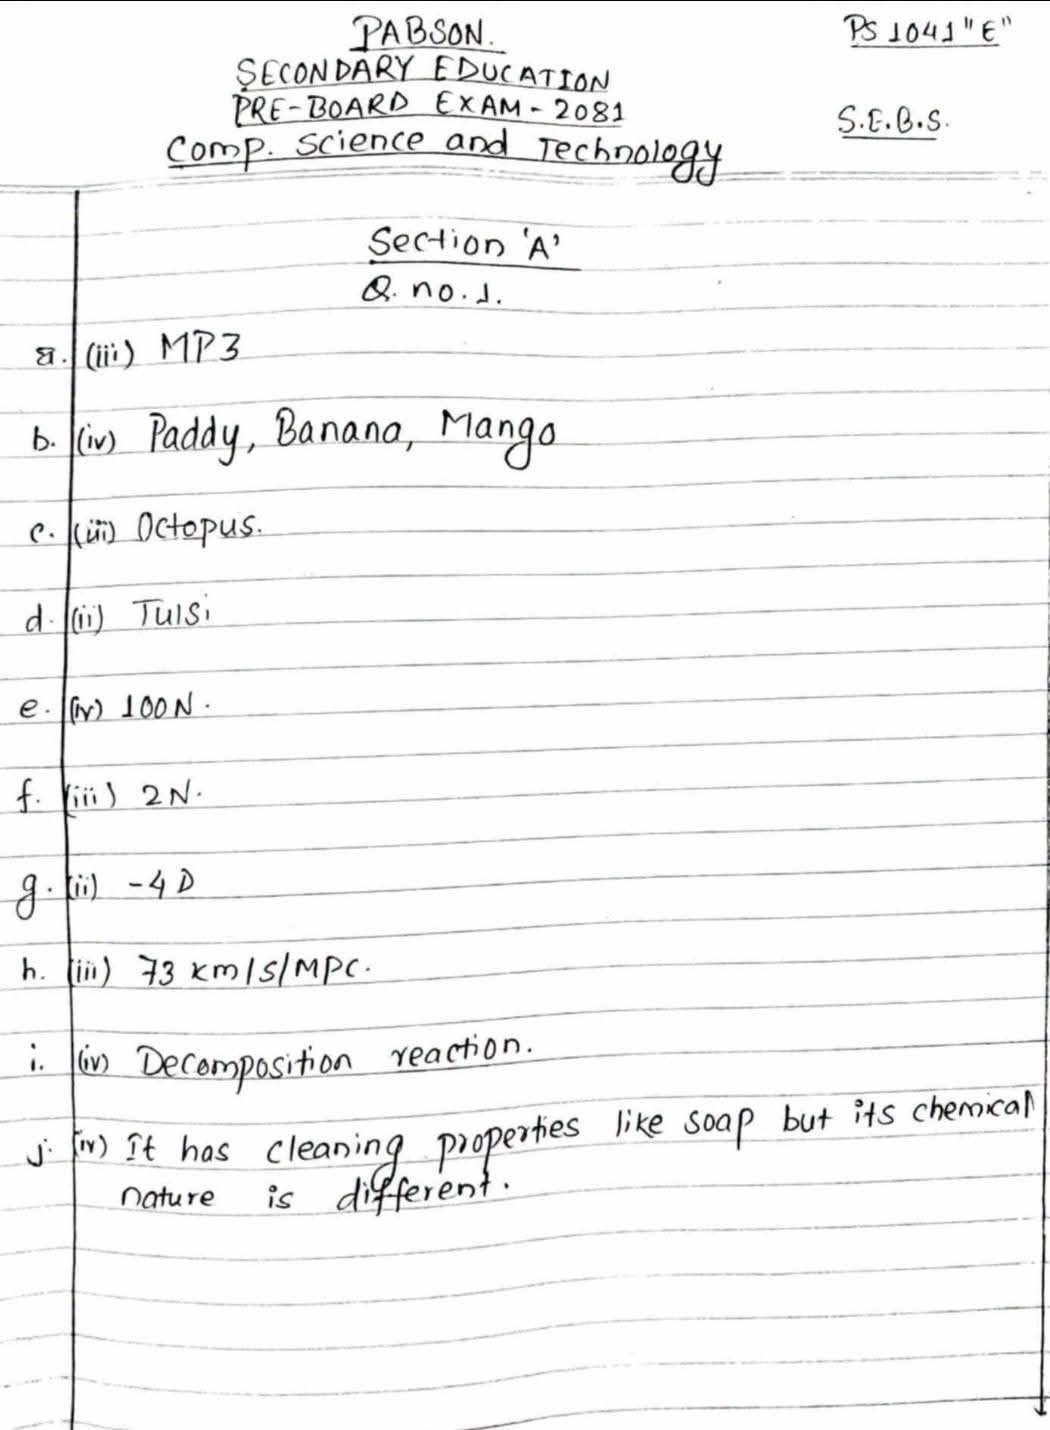 PABSON.
PS 1041 "E"
SECONDARY EDUCATION
PRE-BOARD EXAM - 2081
S.E.B.S.
Comp. Science and Technology
Section 'A'
Q. no. 1.
a. (iii) MP3
b. (iv) Paddy, Banana, Mango
c. (iii) Octopus.
d. (ii) Tulsi
e. (iv) 100N.
f. (iii) 2N.
g. (ii) -4D
h. (iii) 73 km/s/MPC.
i. (iv) Decomposition reaction.
j. (iv) It has cleaning properties like soap but its chemical
nature is different.